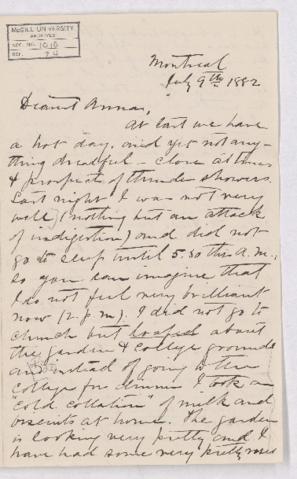 McGILL UNIVERSITY
ARCHIVES
ACC. NO. 1010
REF.
Montreal
July 9th 1882
Dearest Anna,
At last we have
a hot day, and yet not any-
thing dreadful - close at times
& prospects of thunder showers.
Last night I was not very
well (nothing but an attack
of indigestion) and did not
go to sleep until 5.30 this a.m.,
so you can imagine that
I do not feel very brilliant
now (2 p.m.). I did not go to
church but loafed about
the garden & college grounds
and instead of going to the
College for dinner I took a
"cold collation" of milk and
biscuits at home. The garden
is looking very pretty and I
have had some very pretty roses